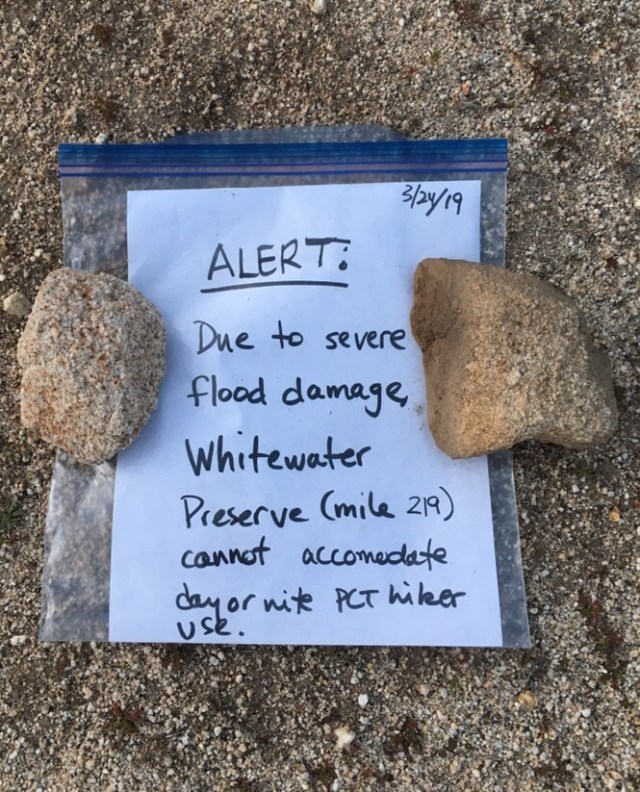 3/24/19
ALERT:
Due to severe
flood damage,
Whitewater
Preserve (mile 219)
cannot accomodate
day or nite PCT hiker
use.